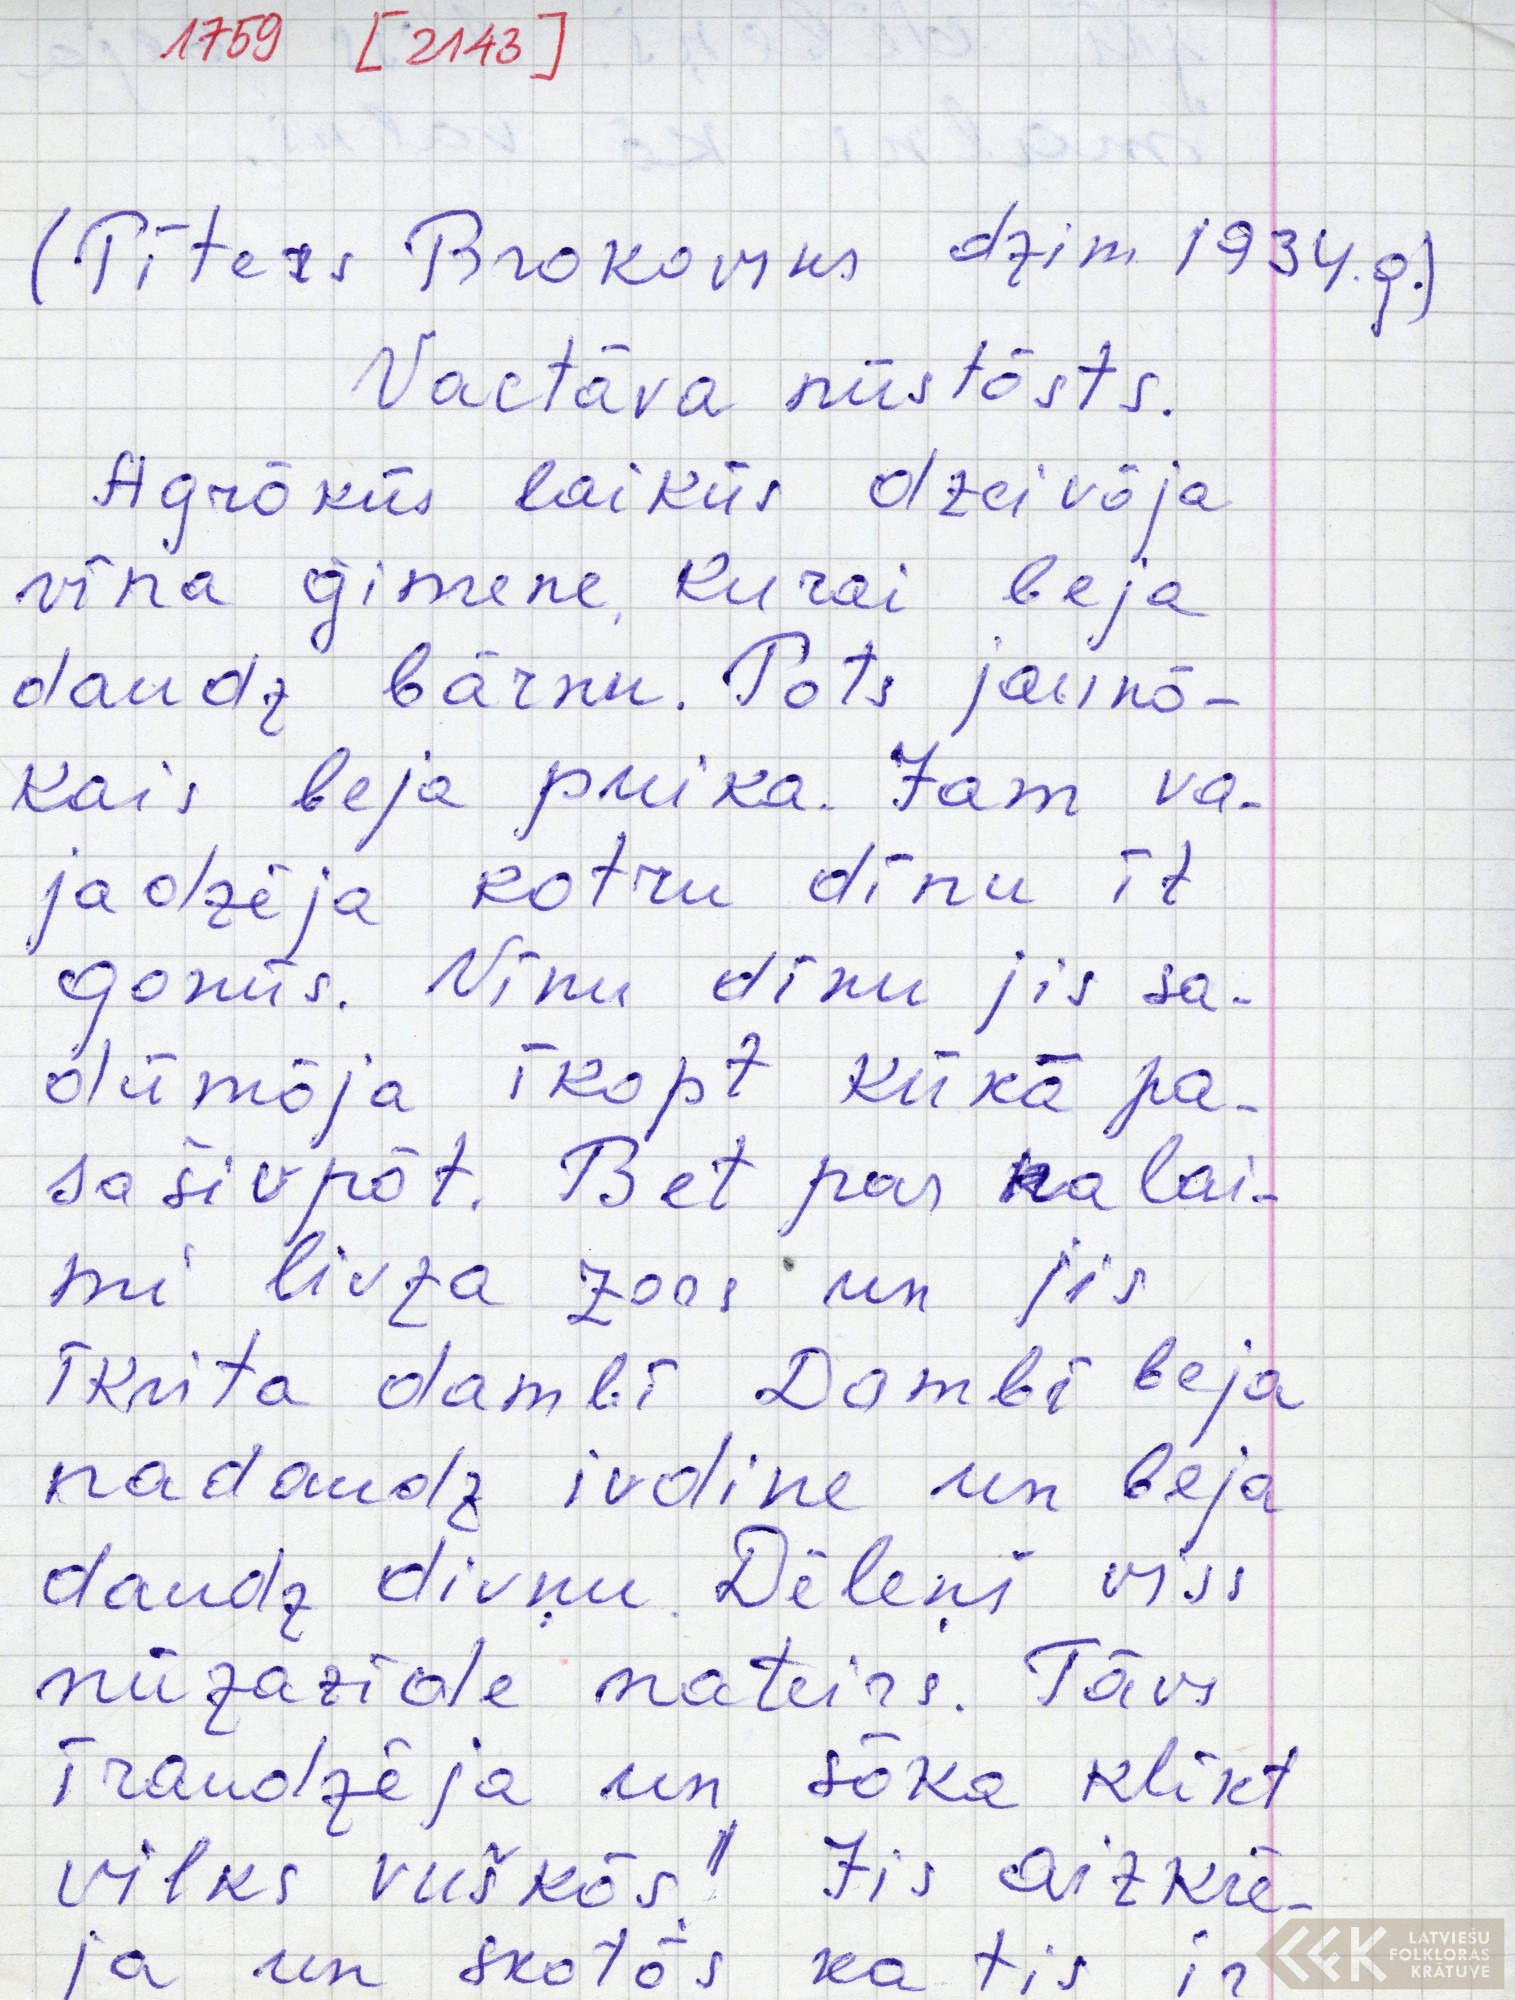 1759 [2143]
(Pīters Brokovskis dzim 1934.g.)
Vactāva nūstōsts.
Agrōkūs laikūs dzeivōja
vīna ģimene, kurai beja
daudz bārnu. Pots jaunō-
kais beja puika. Jam va-
jadzēja kotru dīnu īt
gonūs. Vīnu dīnu jis sa-
dūmōja īkopt kūkā pa-
sašivpōt. Bet par nalai-
mi livza zors un jis
īkrita dambī Dambī beja
nadaudz ivdine un beja
daudz divņu. Dēleņš viss
nūzazīde nateirs. Tāvs
īraudzēja un sōka klīkt
vilks vuškōs! Jis aizkrē-
ja un skotōs ka tis ir
LATVIEŠU
FOLKLORAS
KRĀTUVE